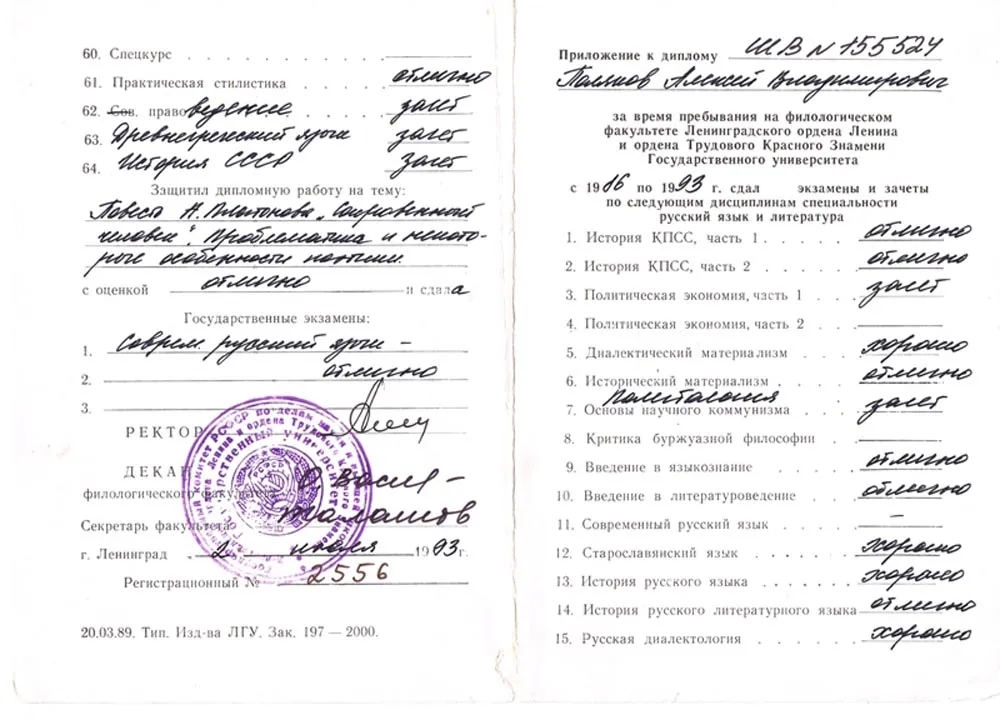 60. Спецкурс . . . . . . . . . .
61. Практическая стилистика отлично
62. Сов. правоведение . . . . . зачет
63. Древнегреческий язык зачет
64. История СССР зачет
Защитил дипломную работу на тему:
Повесть А. Платонова „Сокровенный
человек". Проблематика и некото-
рые особенности поэтики.
с оценкой отлично и сдала
Государственные экзамены:
1. Соврем. русский язык –
отлично
2.
3.
РЕКТОР
ДЕКАН
филологического факультета
Секретарь факультета
г. Ленинград „2 июля 1993 г.
Регистрационный № 2556
20.03.89. Тип. Изд-ва ЛГУ. Зак. 197 — 2000.
Приложение к диплому ШВ № 155524
Поляков Алексей Владимирович
за время пребывания на филологическом
факультете Ленинградского ордена Ленина
и ордена Трудового Красного Знамени
Государственного университета
с 1986 по 1993 г. сдал экзамены и зачеты
по следующим дисциплинам специальности
русский язык и литература
1. История КПСС, часть 1 . . . . . отлично
2. История КПСС, часть 2 . . . . . отлично
3. Политическая экономия, часть 1 . . . зачет
4. Политическая экономия, часть 2 . . .
5. Диалектический материализм . . . хорошо
6. Исторический материализм . . . . отлично
Политология
7. Основы научного коммунизма . . . зачет
8. Критика буржуазной философии . —
9. Введение в языкознание . . . отлично
10. Введение в литературоведение . . . отлично
11. Современный русский язык . . . . —
12. Старославянский язык . . . . . . хорошо
13. История русского языка . . . . . . . хорошо
14. История русского литературного языка отлично
15. Русская диалектология . . . . . . хорошо